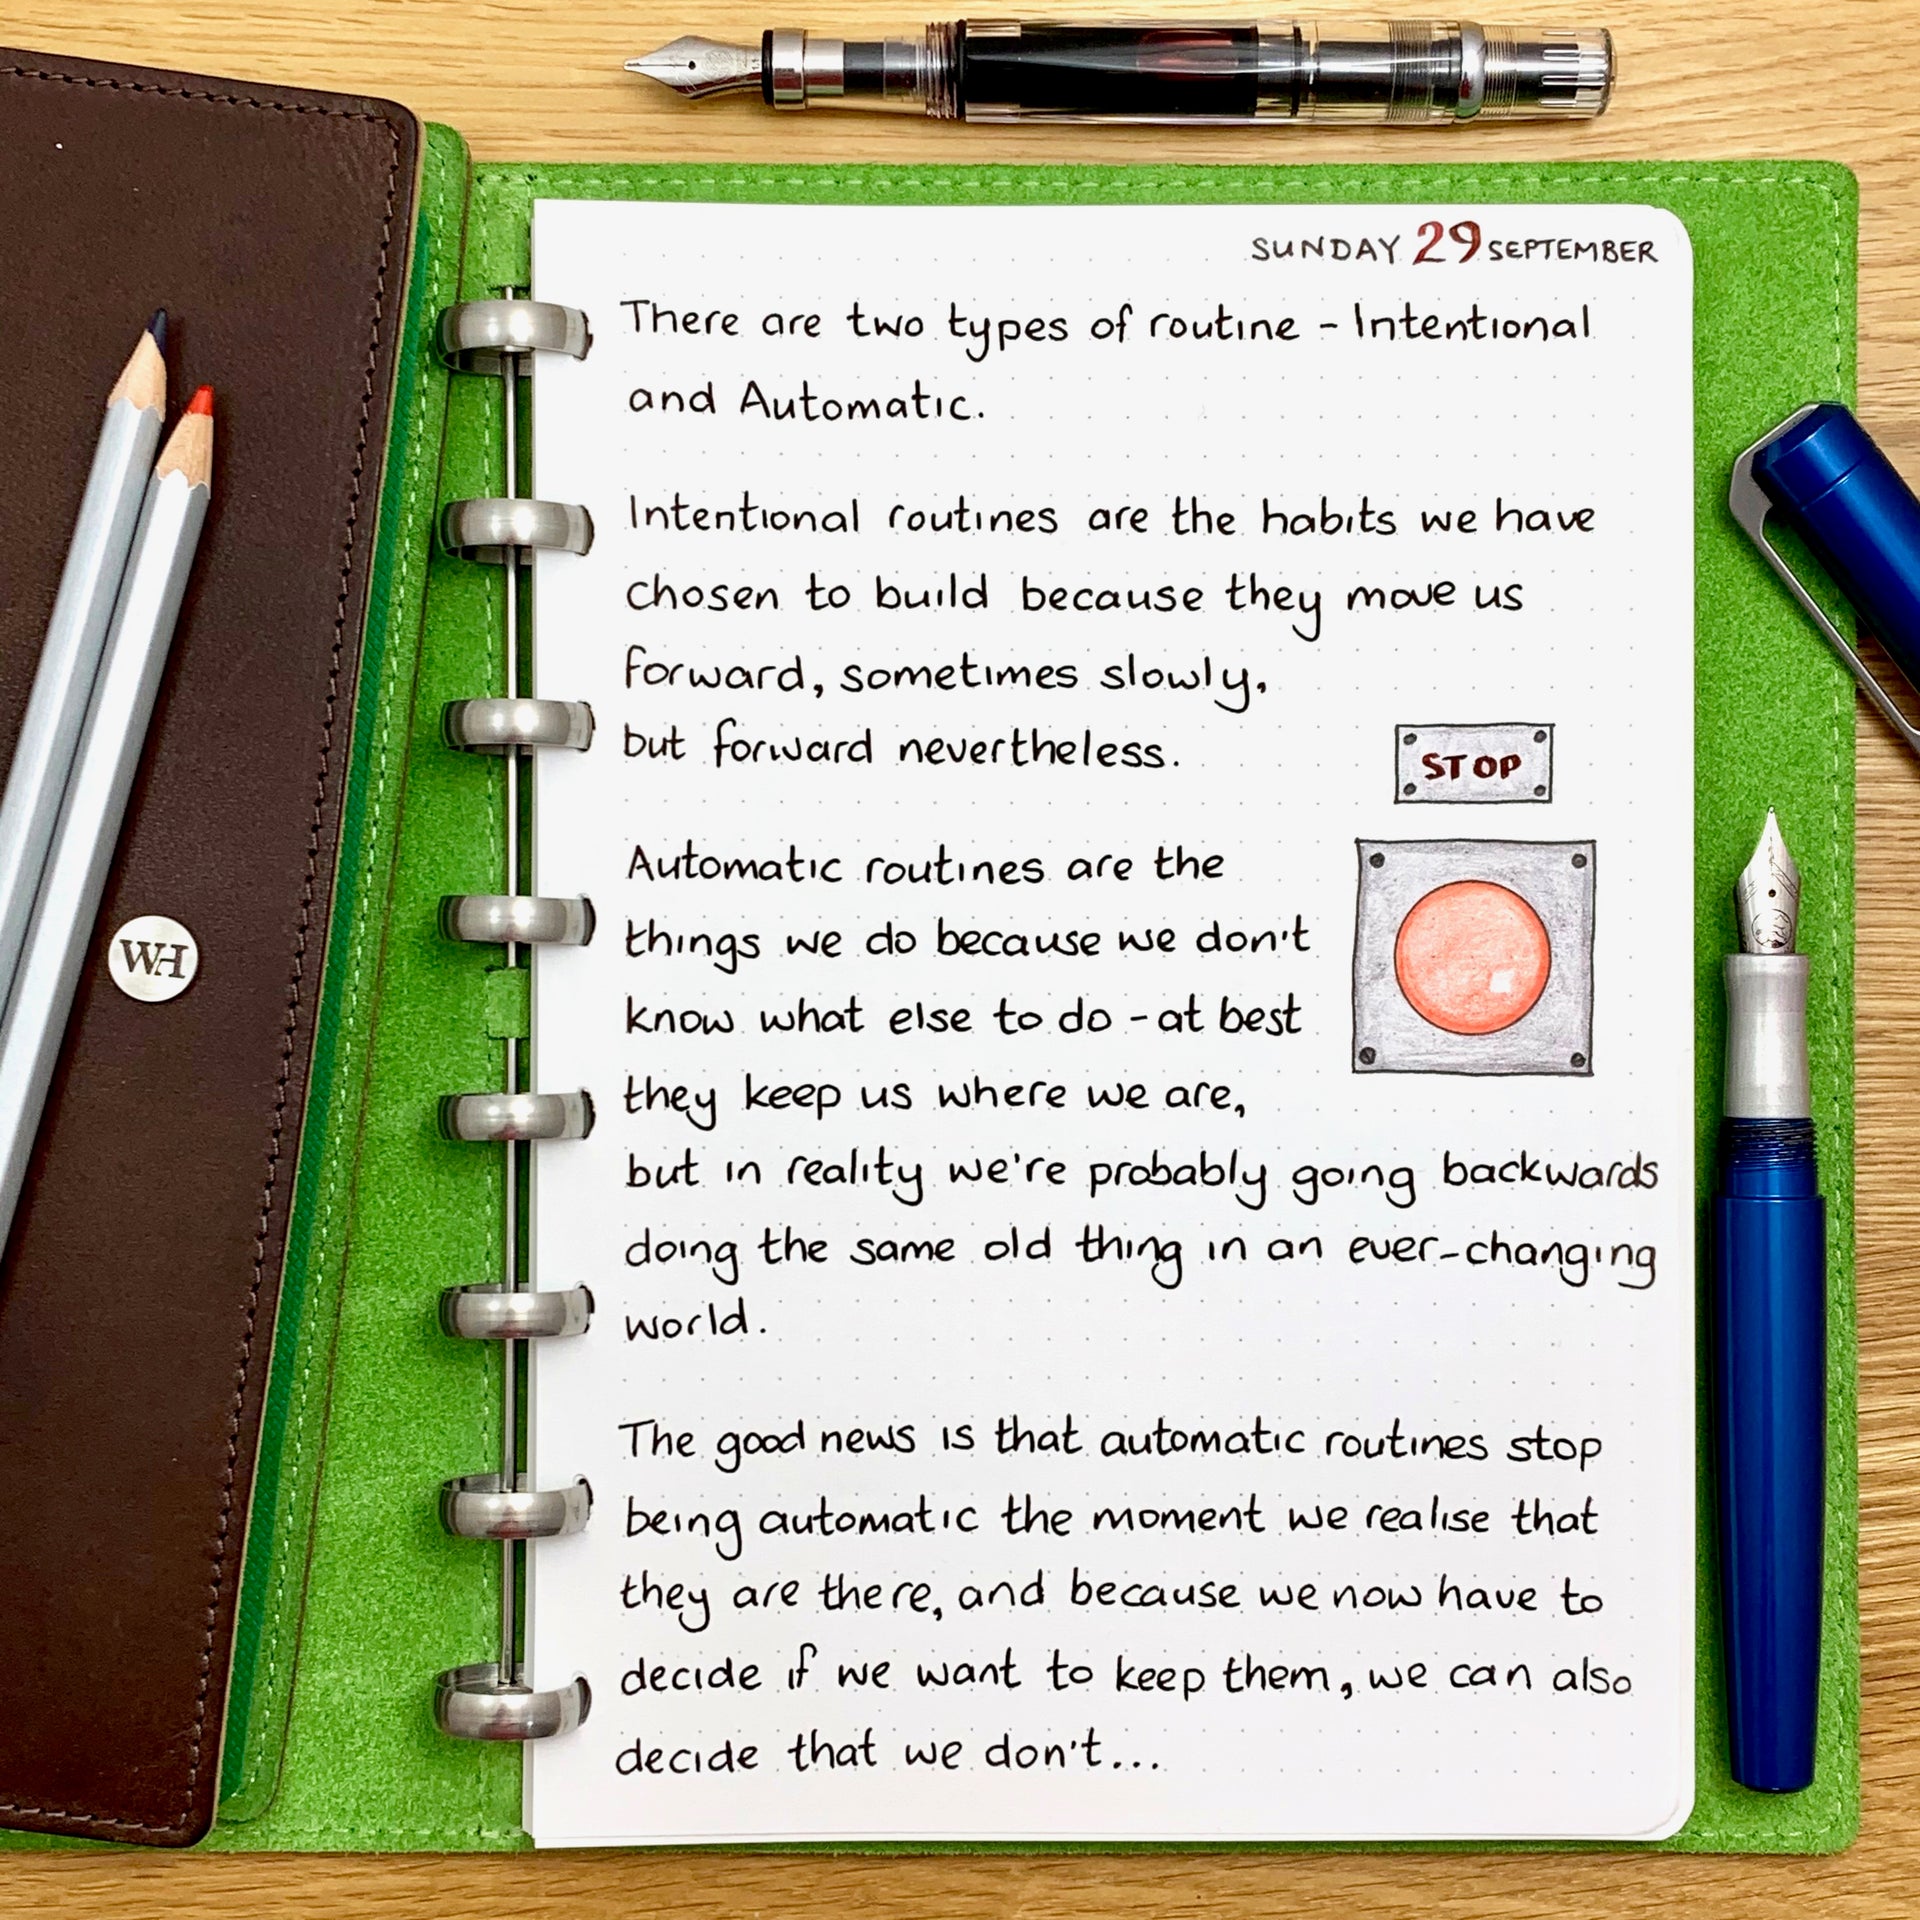 SUNDAY 29 SEPTEMBER
There are two types of routine - Intentional
and Automatic.
Intentional routines are the habits we have
chosen to build because they move us
forward, sometimes slowly,
but forward nevertheless.
STOP
Automatic routines are the
things we do because we don't
know what else to do - at best
they keep us where we are,
but in reality we're probably going backwards
doing the same old thing in an ever-changing
world.
The good news is that automatic routines stop
being automatic the moment we realise that
they are there, and because we now have to
decide if we want to keep them, we can also
decide that we don't...
WH